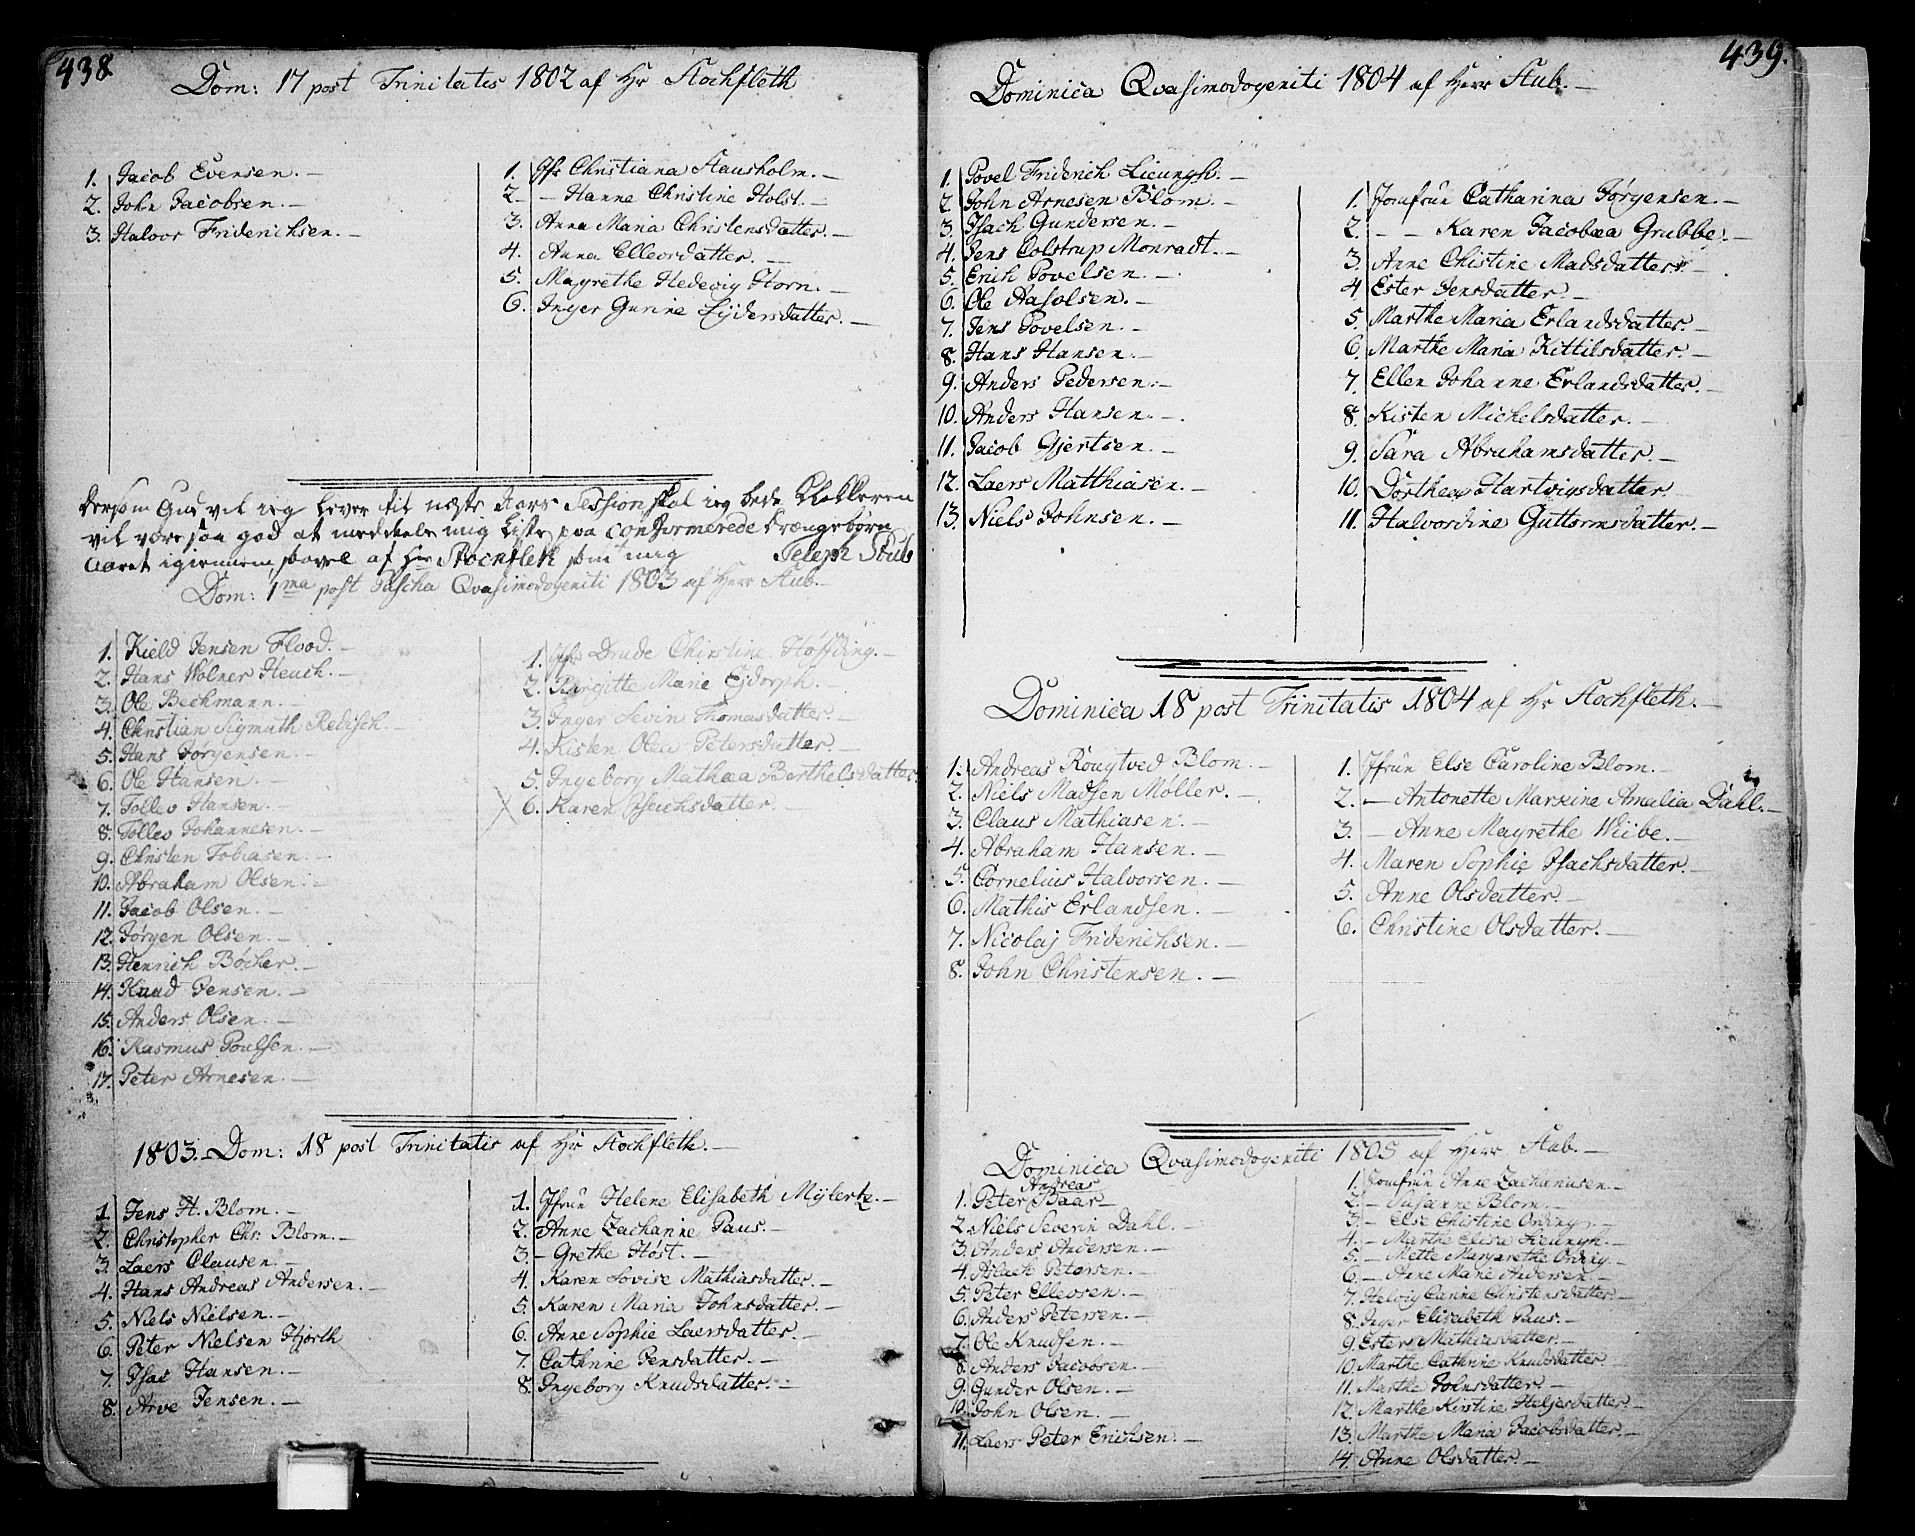 438
Dom: 17 post Trinitatis 1802 af Hr Stochfleth
1. Jacob Evensen. —
2. John Jacobsen. —
3. Halvor Friderichsen. —
1. Jfr Christiana Stausholm. —
2. — Hanne Christine Holst. —
3. Anna Maria Christensdatter. —
4. Anna Elleordatter. —
5. Magrethe Hedevig Horn. —
6. Inger Gurine Lydersdatter. —
dersom Gud vil ieg lever til næste Aars Session skal ieg bede Klokkeren
vil være saa god at meddele mig Liste paa Confirmerede drængebørn
aaret igiennem, savel af Herr Stockfleth som mig Seleph Stub
Dom: 1ma post Pascha Qvasimodogeniti 1803 af Herr Stub. —
1. Kield Jensen Flood. —
2. Hans Wolner Heuch. —
3. Ole Bechmann. —
4. Christian Sigmuth Redisch. —
5. Hans Jørgensen. —
6. Ole Hansen. —
7. Tollev Hansen. —
8. Tollev Johannesen. —
9. Christen Tobiasen. —
10. Abraham Olsen. —
11. Jacob Olsen. —
12. Jørgen Olsen. —
13. Henrich Bøcher. —
14. Knud Jensen. —
15. Anders Olsen. —
16. Rasmus Poulsen. —
17. Peter Arnesen. —
1. Jfr Drude Chirstine Høffding. —
2. Birgitte Marie Ejdorph.
3. Inger Sevin Thomasdatter. —
4. Kisten Olea Petersdatter. —
5. Ingeborg Mathæa Berthelsdatter.
6. Karen Isachsdatter.
1803. Dom: 18 post Trinitatis af Hr Stochfleth. —
1. Jens H. Blom. —
2. Christopher Chr. Blom. —
3. Laers Clausen. —
4. Hans Andreas Andersen. —
5. Niels Nielsen. —
6. Peter Nielsen Hjorth
7. Isac Hansen. —
8. Arve Jensen. —
1. Jfrun Helene Elisabeth Mylertz. —
2. Anne Zacharine Paus. —
3. — Grethe Høst. —
4. Karen Lovise Mathiasdatter. —
5. Karen Maria Johnsdatter. —
6. Anne Sophie Laersdatter. —
7. Cathrine Jensdatter. —
8. Ingeborg Knudsdatter. —
439.
Dominica Qvasimodogeniti 1804 af Herr Stub. —
1. Povel Friderich Lieungh. —
2. John Arnesen Blom. —
3. Isach Gundersen. —
4. Jens Colstrup Monradt. —
5. Erich Povelsen. —
6. Ole Aasolsen. —
7. Jens Povelsen. —
8. Hans Hansen. —
9. Anders Pedersen. —
10. Anders Hansen. —
11. Jacob Gjertsen. —
12. Laers Matthiasen. —
13. Niels Johnsen. —
1. Jomfrun Catharina Jørgensen. —
2. — — Karen Jacobæa Grubbe. —
3. Anne Chistine Madsdatter. —
4 Ester Jensdatter. —
5. Marthe Maria Erlandsdatter. —
6. Marthe Maria Kittilsdatter. —
7. Ellen Johanne Erlandsdatter. —
8. Kisten Michelsdatter. —
9. Sara Abrahamsdatter. —
10. Dorthea Hartvigsdatter. —
11. Halvordine Guttormsdatter. —
Dominica 18 post Trinitatis 1804 af Hr Stochfleth. —
1. Andreas Rougtved Blom. —
2. Niels Madsen Møller. —
3. Claus Mathiasen. —
4. Abraham Hansen. —
5. Cornelius Halvorsen. —
6. Mathis Erlandsen. —
7. Nicolaj Friderichsen. —
8. John Christensen. —
1. Jfrun Else Caroline Blom. —
2. — Antonette Maxine Amalia Dahl. —
3. — Anne Magrethe Wiibe. —
4. Maren Sophie Isachsdatter. —
5. Anne Olsdatter. —
6. Christine Olsdatter. —
Dominica Qvasimodogeniti 1805 af Herr Stub. —
Andreas
1. Peter Baar —
2. Niels Severin Dahl. —
3. Anders Andersen. —
4. Aslach Petersen. —
5. Peter Elleosen. —
6. Anders Petersen. —
7. Ole Knudsen. —
8. Anders Jacobsen. —
9. Gunder Olsen. —
10. John Olsen. —
11. Laers Peter Erichsen. —
1. Jomfrun Anne Zachariasen. —
2. — Susanne Blom. —
3. — Else Chistine Orning. —
4. — Marthe Elisa Lieungh. —
5. — Mette Margarethe Orning. —
6. — Anne Marie Andersen. —
7. Helvig Canne Christensdatter. —
8. Inger Elisabeth Paus. —
9. Ester Mathiasdatter. —
10. Marthe Cathrine Knudsdatter. —
11. Marthe Johnsdatter. —
12. Marthe Kirstine Heljesdatter. —
13. Marthe Maria Jacobsdatter. —
14. Anne Olsdatter. —